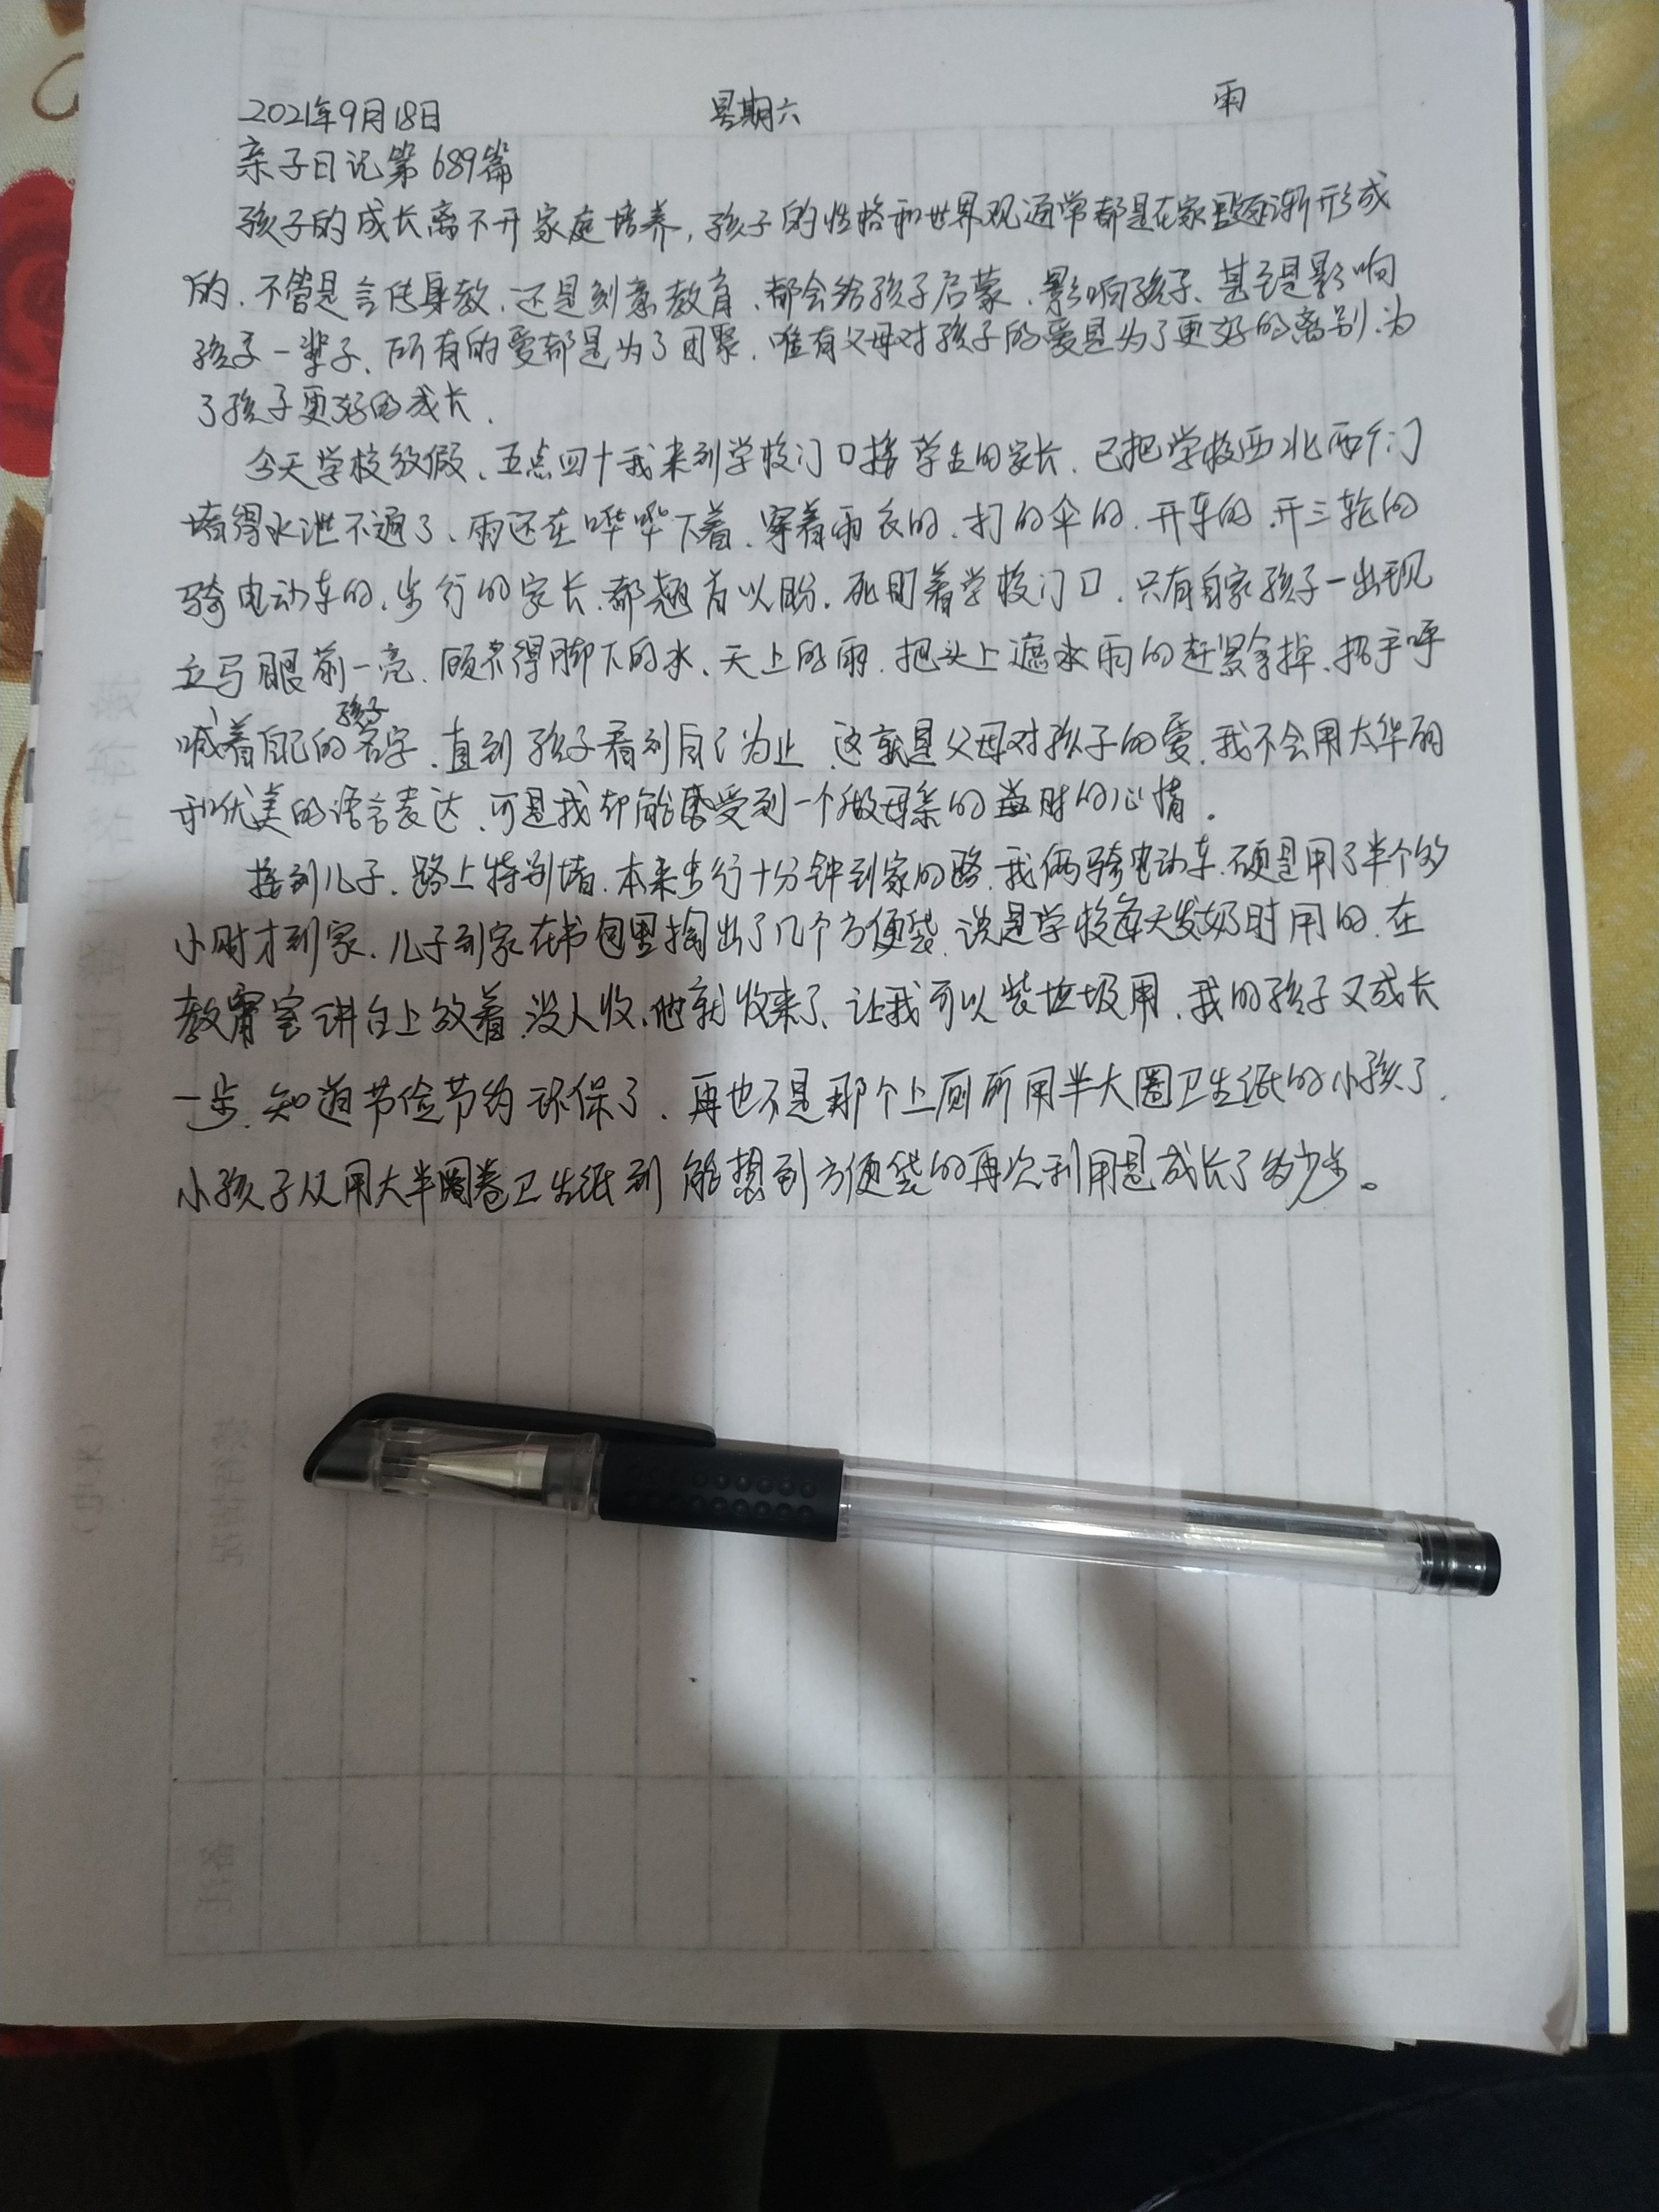 2021年9月18日 星期六 雨
亲子日记第689篇
孩子的成长离不开家庭培养,孩子的性格和世界观通常都是在家里逐渐形成
的、不管是言传身教、还是刻意教育、都会给孩子启蒙、影响孩子、甚至是影响
孩子一辈子、所有的爱都是为了团聚、唯有父母对孩子的爱是为了更好的离别、为
了孩子更好的成长.
今天学校放假、五点四十我来到学校门口接学生的家长、已把学校西北两个门
堵得水泄不通了、雨还在哗哗下着、穿着雨衣的、打的伞的、开车的、开三轮的
骑电动车的、步行的家长、都翘首以盼、死盯着学校门口、只有自家孩子一出现
立马眼前一亮、顾不得脚下的水、天上的雨、把头上遮雨的赶紧拿掉、招手呼
喊着自己的孩子名字、直到孩子看到自己为止、这就是父母对孩子的爱、我不会用太华丽
和优美的语言表达、可是我却能感受到一个做母亲的当时的心情。
接到儿子、路上特别堵、本来步行十分钟到家的路、我俩骑电动车、硬是用了半个多
小时才到家、儿子到家在书包里掏出了几个方便袋、说是学校每天发奶时用的、在
教室讲台上放着、没人收、他就收来了、让我可以装垃圾用、我的孩子又成长
一步、知道节俭节约环保了、再也不是那个上厕所用半大圈卫生纸的小孩了、
小孩子从用大半圈卷卫生纸到能想到方便袋的再次利用是成长了多少步。